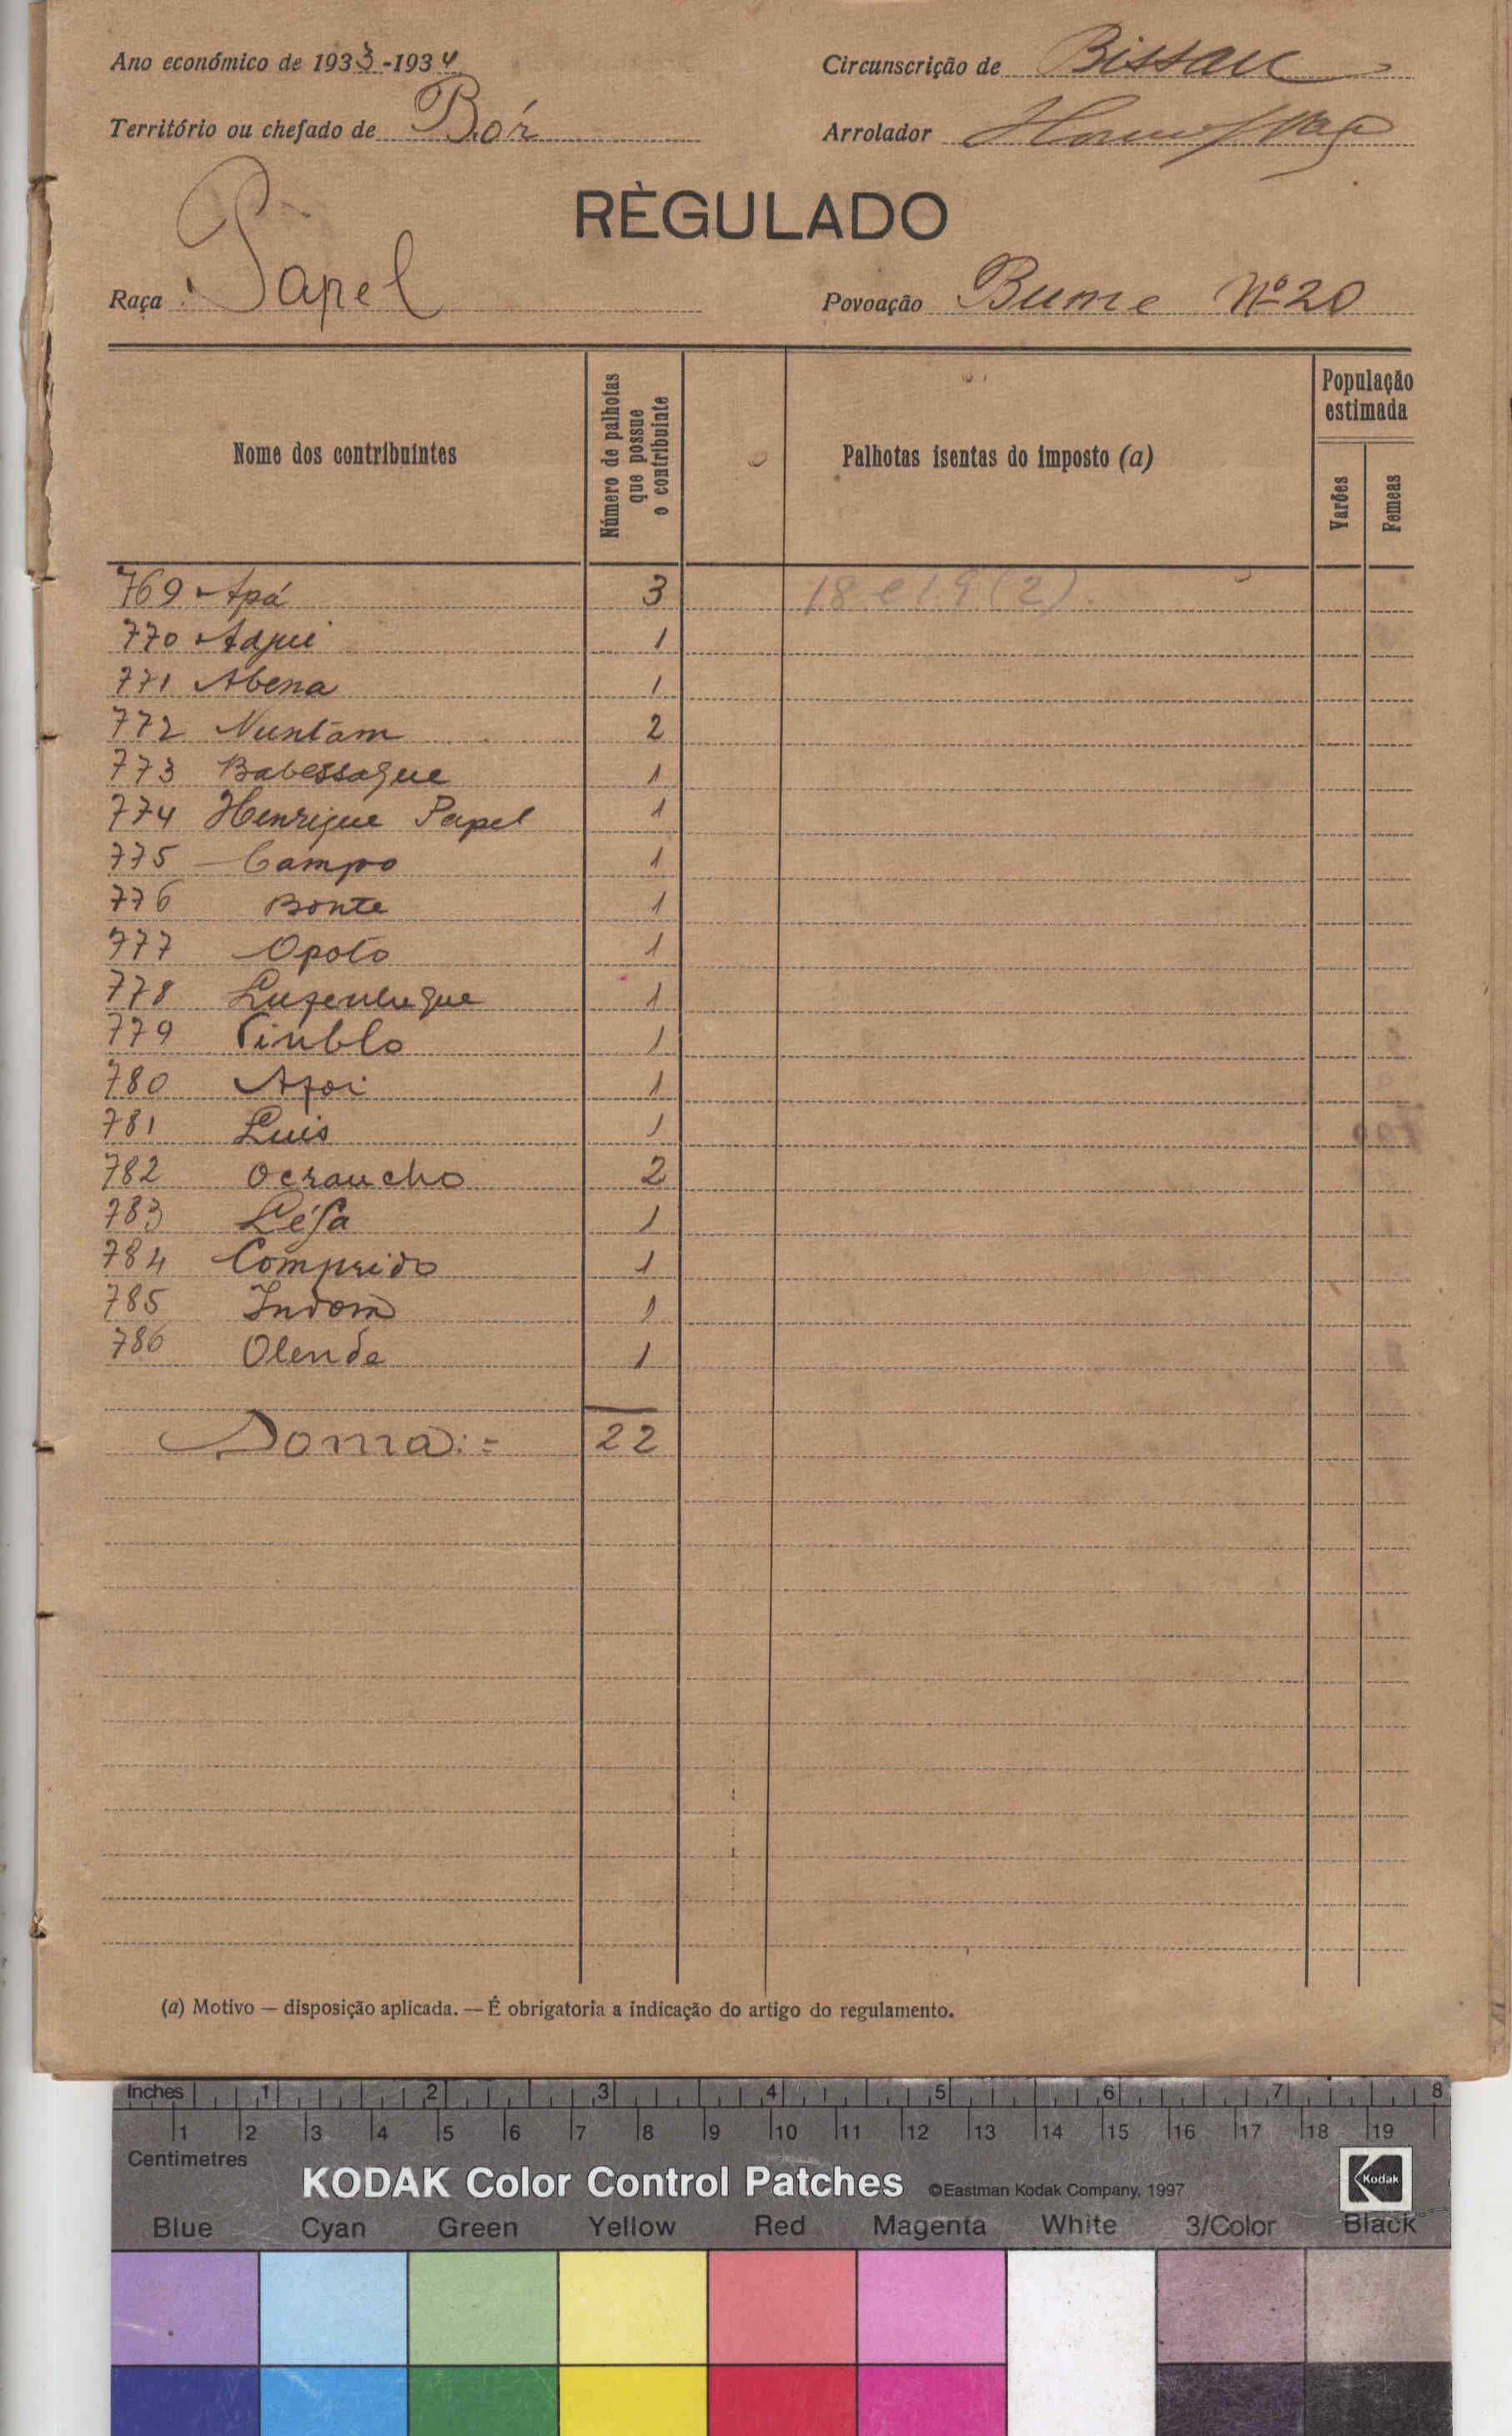 Ano económico de 1933-1934
Circunscrição de Bissau
Território ou chefado de Bór
Arrolador
RÈGULADO
Raça Papel
Povoação Bume Nº 20
Nome dos contribuintes
Número de palhotas que possue o contribuinte
Palhotas isentas do imposto (a)
População estimada
Varões
Femeas
769 Apá 3 18 e 19 (2).
770 Adjui 1
771 Abena 1
772 Nuntam 2
773 Babessague 1
774 Henrique Papel 1
775 Campo 1
776 Bonte 1
777 Opoto 1
778 1
779 1
780 1
781 Luis 1
782 Ocraucho 2
783 1
784 Comprido 1
785 Indom 1
786 Olende 1
Soma:= 22
(a) Motivo — disposição aplicada. — É obrigatoria a indicação do artigo do regulamento.
Inches 1 2 3 4 5 6 7 8
1 2 3 4 5 6 7 8 9 10 11 12 13 14 15 16 17 18 19
Centimetres
KODAK Color Control Patches ©Eastman Kodak Company, 1997 Kodak
Blue Cyan Green Yellow Red Magenta White 3/Color Black